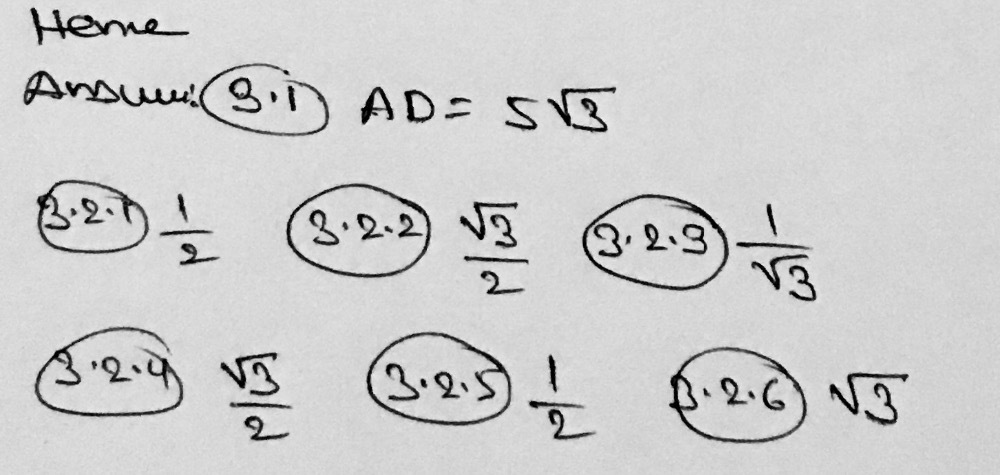 Hence
Answer: 3.1 AD = 5√3
3.2.1 1/2 3.2.2 √3/2 3.2.3 1/√3
3.2.4 √3/2 3.2.5 1/2 3.2.6 √3